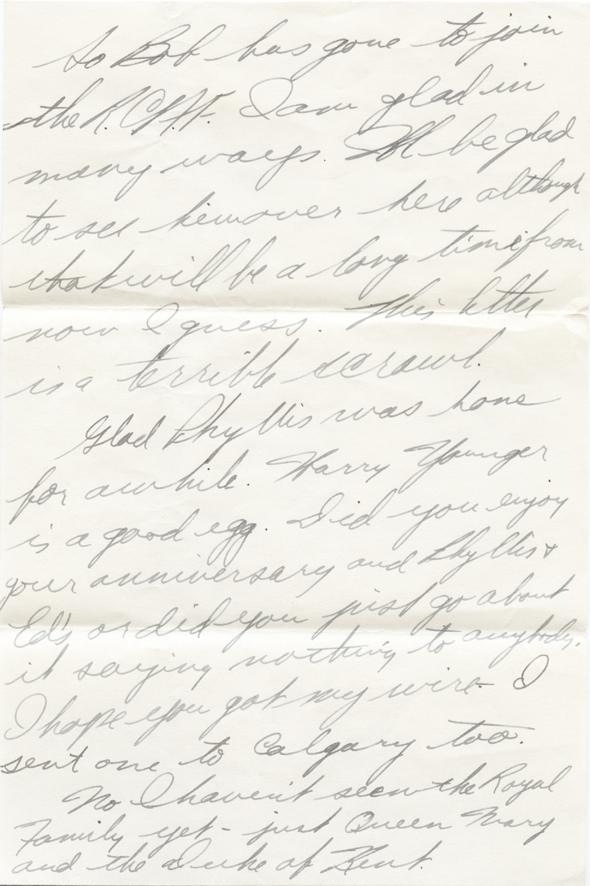 So Bob has gone to join
the R.C.A.F. I am glad in
many ways. I'll be glad
to see him over here although
that will be a long time from
now I guess. This letter
is a terrible scrawl.
Glad Phyllis was home
for awhile. Harry Younger
is a good egg. Did you enjoy
your anniversary and Phyllis &
Ed's or did you just go about
it saying nothing to anybody.
I hope you got my wire - I
sent one to Calgary too.
No I haven't seen the Royal
Family yet - just Queen Mary
and the Duke of Kent.